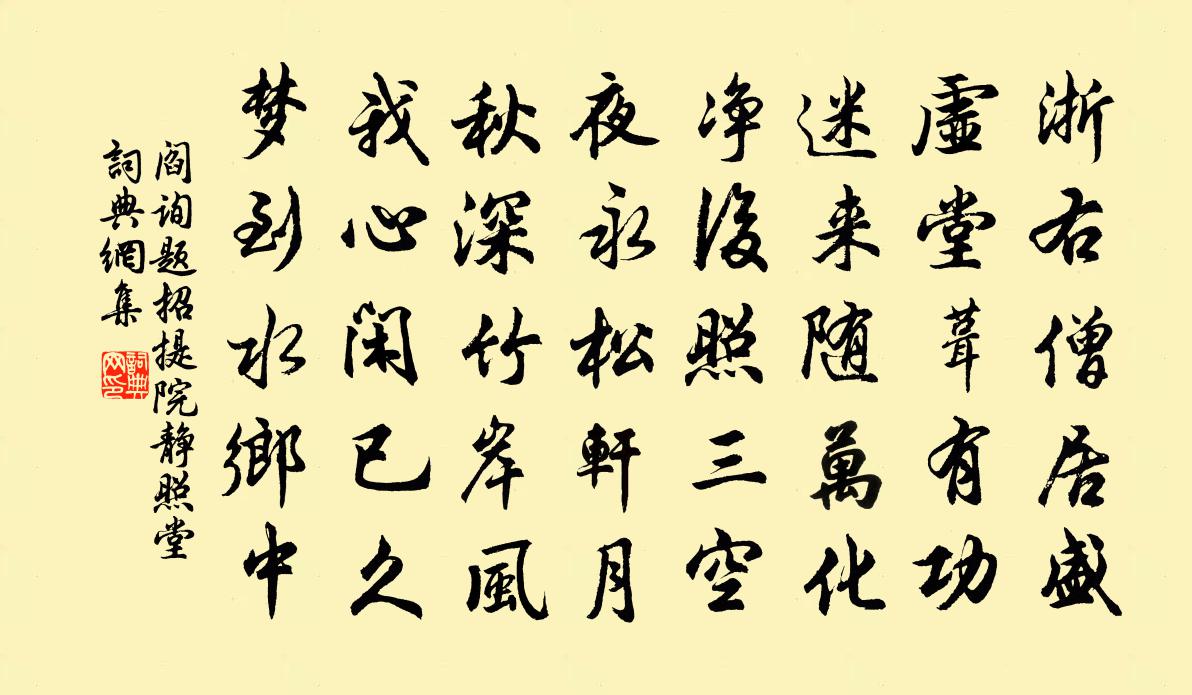 浙右僧居盛
虚堂葺有功
迷来随萬化
净後照三空
夜永松軒月
秋深竹岸風
我心闲已久
梦到水鄉中
阎询题招提院静照堂
詞典網集
詞典网印